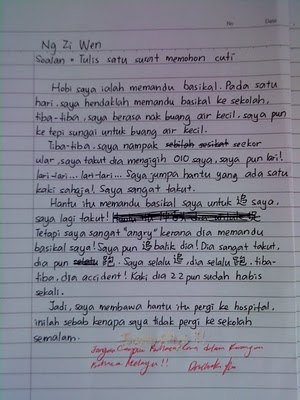 No
Date
Ng Zi Wen
Soalan : Tulis satu surat memohon cuti
Hobi saya ialah memandu basikal. Pada satu
hari, saya hendaklah memandu basikal ke sekolah,
tiba-tiba, saya berasa nak buang air kecil, saya pun
ke tepi sungai untuk buang air kecil.
Tiba-tiba, saya nampak sebilah sesikat seekor
ular, saya takut dia mengigih OIO saya, saya pun lari!
lari-lari... lari-lari... Saya jumpa hantu yang ada satu
kaki sahaja! Saya sangat takut.
Hantu itu memandu basikal saya untuk 追 saya,
saya lagi takut!
Tetapi saya sangat "angry" kerana dia memandu
basikal saya! Saya pun 追 balik dia! Dia sangat takut,
dia pun selalu 跑. Saya selalu 追, dia selalu 跑, tiba-
tiba, dia accident! Kaki dia 22 pun sudah habis
sekali.
Jadi, saya membawa hantu itu pergi ke hospital,
inilah sebab kenapa saya tidak pergi ke sekolah
semalam.
Jangan Campur Bahasa Cina dalam Karangan
Bahasa Melayu!!